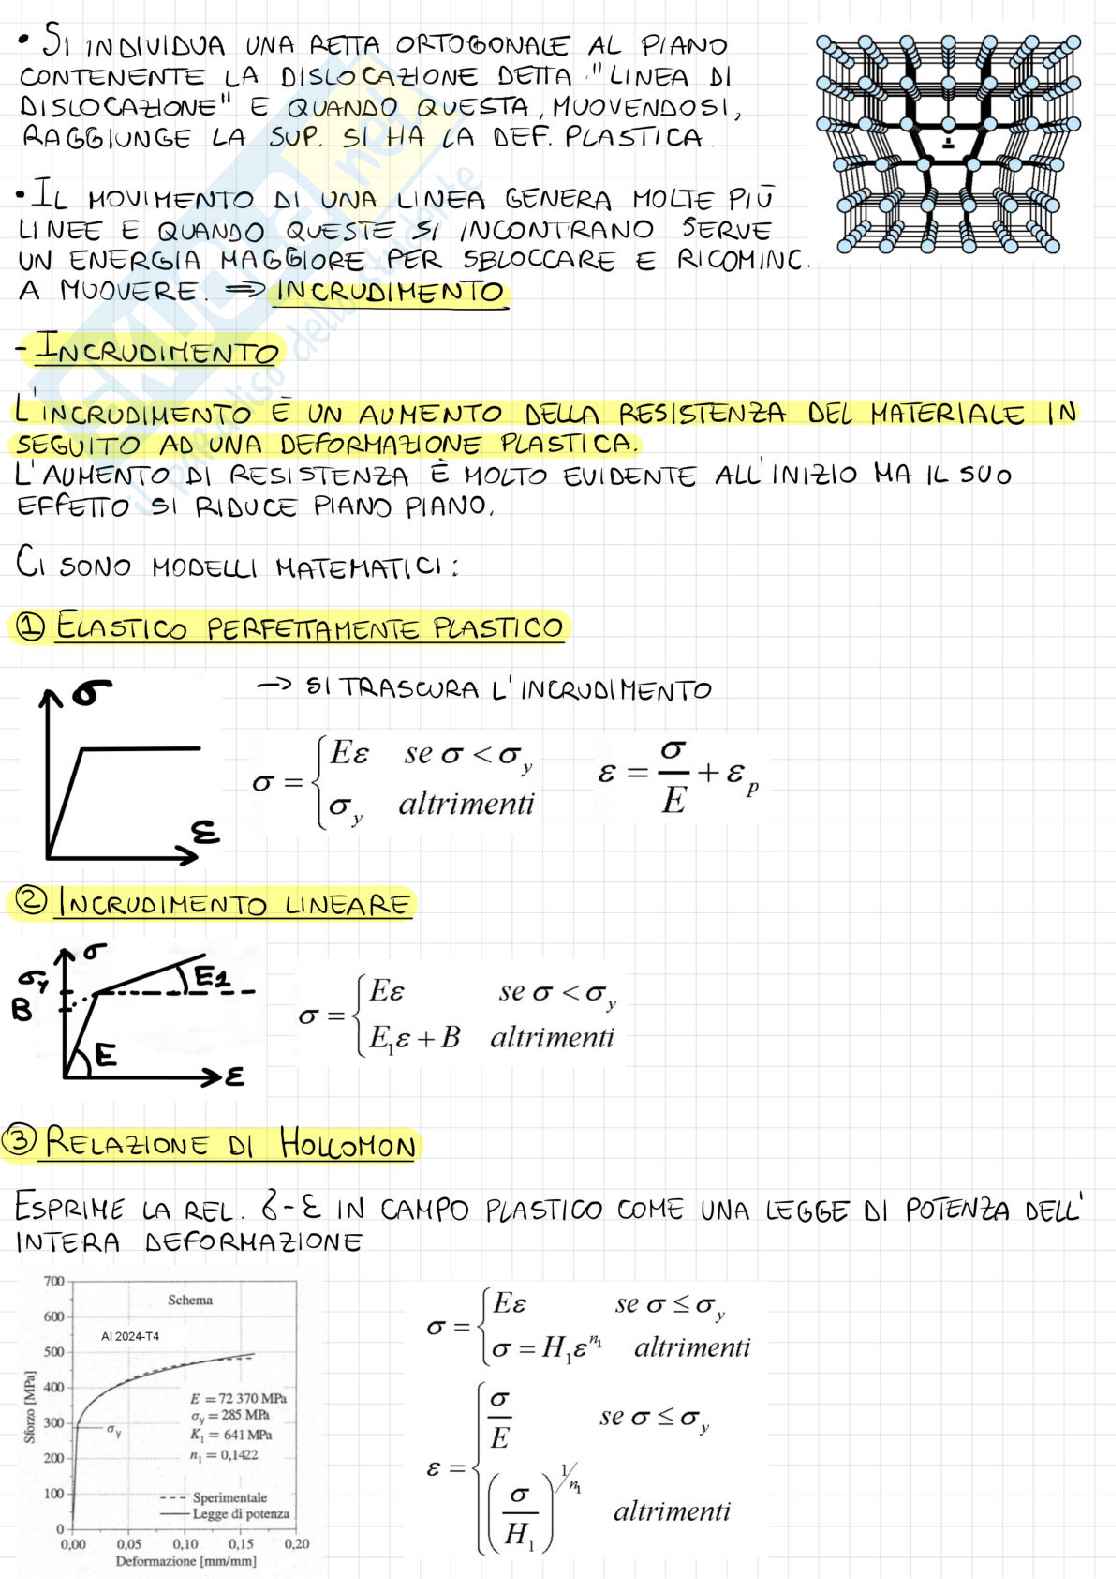 • SI INDIVIDUA UNA RETTA ORTOGONALE AL PIANO
CONTENENTE LA DISLOCAZIONE DETTA "LINEA DI
DISLOCAZIONE" E QUANDO QUESTA, MUOVENDOSI,
RAGGIUNGE LA SUP. SI HA LA DEF. PLASTICA
• IL MOVIMENTO DI UNA LINEA GENERA MOLTE PIÙ
LINEE E QUANDO QUESTE SI INCONTRANO SERVE
UN ENERGIA MAGGIORE PER SBLOCCARE E RICOMINC.
A MUOVERE. ⇒ INCRUDIMENTO
- INCRUDIMENTO
L'INCRUDIMENTO È UN AUMENTO DELLA RESISTENZA DEL MATERIALE IN
SEGUITO AD UNA DEFORMAZIONE PLASTICA.
L'AUMENTO DI RESISTENZA È MOLTO EVIDENTE ALL'INIZIO MA IL SUO
EFFETTO SI RIDUCE PIANO PIANO.
CI SONO MODELLI MATEMATICI:
① ELASTICO PERFETTAMENTE PLASTICO
σ
→ SI TRASCURA L'INCRUDIMENTO
σ = { Eε se σ < σy
σy altrimenti
ε = σ/E + εp
ε
② INCRUDIMENTO LINEARE
σ
σy
B
E1
E
ε
σ = { Eε se σ < σy
E₁ε + B altrimenti
③ RELAZIONE DI HOLLOMON
ESPRIME LA REL. σ-ε IN CAMPO PLASTICO COME UNA LEGGE DI POTENZA DELL'
INTERA DEFORMAZIONE
Sforzo [MPa]
700
600
500
400
300
200
100
0
Schema
Al 2024-T4
σy
E = 72 370 MPa
σy = 285 MPa
K₁ = 641 MPa
n₁ = 0,1422
--- Sperimentale
— Legge di potenza
0,00 0,05 0,10 0,15 0,20
Deformazione [mm/mm]
σ = { Eε se σ ≤ σy
σ = H₁ε^n₁ altrimenti
ε = { σ/E se σ ≤ σy
(σ/H₁)^1/n₁ altrimenti